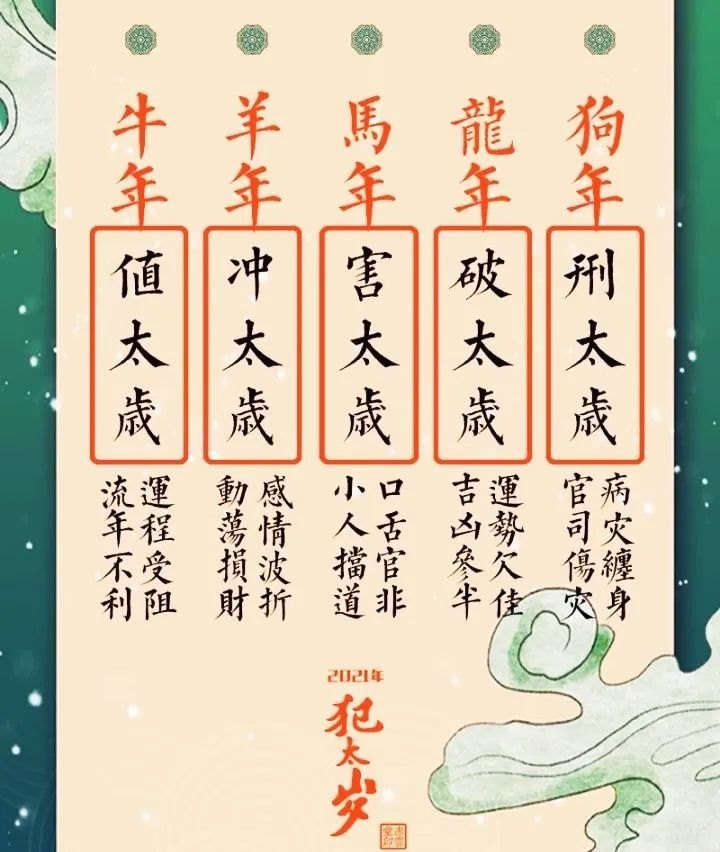 牛年
値太歳
運程受阻
流年不利
羊年
冲太歳
感情波折
動蕩損財
馬年
害太歳
口舌官非
小人擋道
龍年
破太歳
運勢欠佳
吉凶參半
狗年
刑太歳
病灾纏身
官司傷灾
2021年
犯太岁